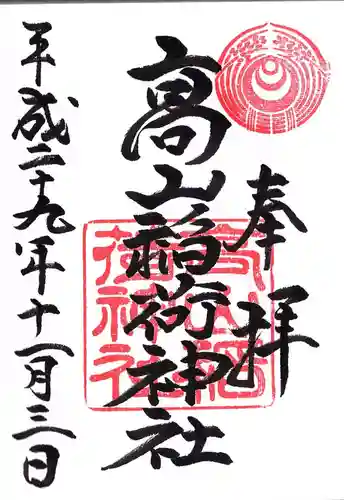 奉拝
高山稲荷神社
高山稲荷神社
平成二十九年十一月三日